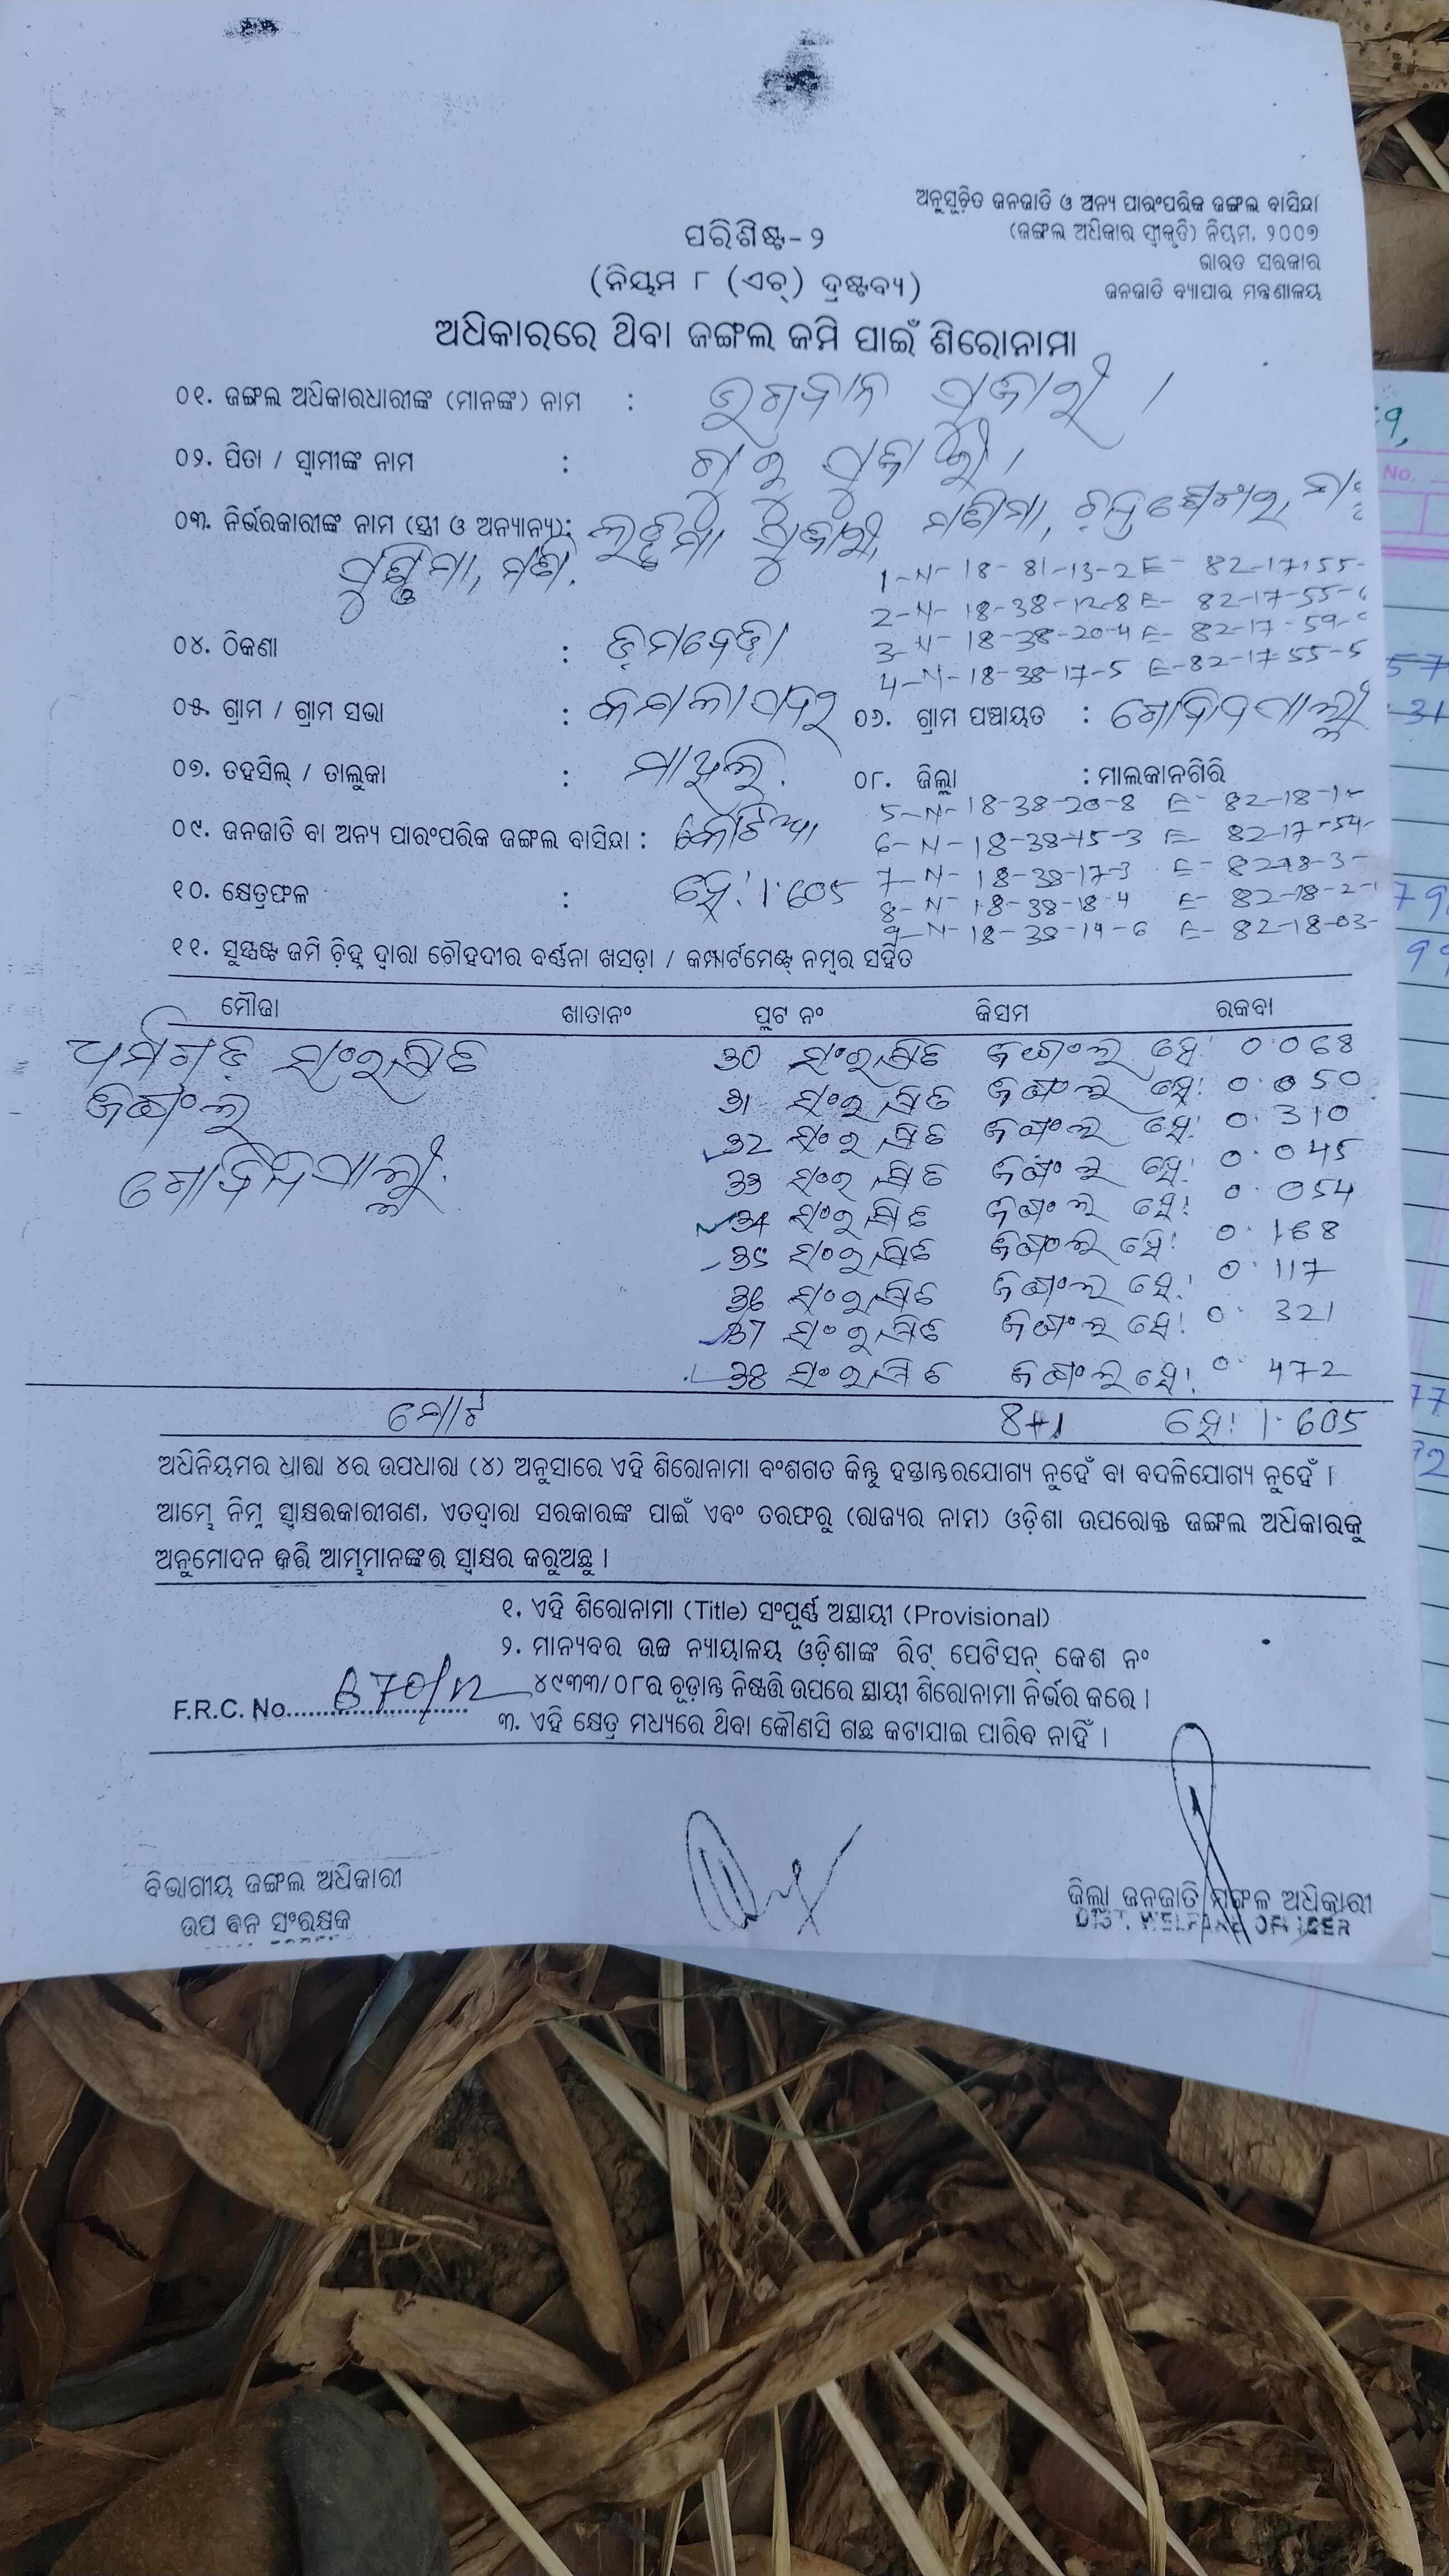 ଅନୁସୂଚିତ ଜନଜାତି ଓ ଅନ୍ୟ ପାରଂପରିକ ଜଙ୍ଗଲ ବାସିନ୍ଦା
(ଜଙ୍ଗଲ ଅଧିକାର ସ୍ୱୀକୃତି) ନିୟମ, ୨୦୦୭
ଭାରତ ସରକାର
ଜନଜାତି ବ୍ୟାପାର ମନ୍ତ୍ରଣାଳୟ
ପରିଶିଷ୍ଟ-୨
(ନିୟମ ୮ (ଏଚ୍) ଦ୍ରଷ୍ଟବ୍ୟ)
ଅଧିକାରରେ ଥିବା ଜଙ୍ଗଲ ଜମି ପାଇଁ ଶିରୋନାମା
୦୧. ଜଙ୍ଗଲ ଅଧିକାରଧାରୀଙ୍କ (ମାନଙ୍କ) ନାମ : ଭଗବାନ ପୂଜାରୀ ।
୦୨. ପିତା / ସ୍ୱାମୀଙ୍କ ନାମ : ଗୁରୁ ପୂଜାରୀ ।
୦୩. ନିର୍ଭରକାରୀଙ୍କ ନାମ (ସ୍ତ୍ରୀ ଓ ଅନ୍ୟାନ୍ୟ): ଲଛମା ପୂଜାରୀ,
1-N- 18- 81-13-2 E- 82-17-55-
2-N- 18-38-12-8 E- 82-17-55-
3-N- 18-38-20-4 E- 82-17-59-
4-N-18-38-17-5 E-82-17-55-5
୦୪. ଠିକଣା :
୦୫. ଗ୍ରାମ / ଗ୍ରାମ ସଭା : ୦୬. ଗ୍ରାମ ପଞ୍ଚାୟତ : ଗୋବିନ୍ଦପାଲ୍ଲୀ
୦୭. ତହସିଲ୍ / ତାଲୁକା : ମାଥିଲି. ୦୮. ଜିଲ୍ଲା : ମାଲକାନଗିରି
5-N-18-38-20-8 E- 82-18-1-
୦୯. ଜନଜାତି ବା ଅନ୍ୟ ପାରଂପରିକ ଜଙ୍ଗଲ ବାସିନ୍ଦା :
6-N-18-38-15-3 E- 82-17-54-
7-N-18-38-17-3 E- 82-18-3-
୧୦. କ୍ଷେତ୍ରଫଳ : ହେ: 1.605
8-N-18-38-18-4 E- 82-18-2-
9-N-18-38-14-6 E- 82-18-03-
୧୧. ସୁସ୍ପଷ୍ଟ ଜମି ଚିହ୍ନ ଦ୍ୱାରା ଚୌହଦୀର ବର୍ଣ୍ଣନା ଖସଡ଼ା / କମ୍ପାର୍ଟମେଣ୍ଟ୍ ନମ୍ବର ସହିତ
ମୌଜା ଖାତାନଂ ପ୍ଲଟ ନଂ କିସମ ରକବା
ଧର୍ମଗଡ଼ ସଂରକ୍ଷିତ 30 ସଂରକ୍ଷିତ ଜଙ୍ଗଲ ହେ: 0.068
ଜଙ୍ଗଲ 31 ସଂରକ୍ଷିତ ଜଙ୍ଗଲ ହେ: 0.050
32 ସଂରକ୍ଷିତ ଜଙ୍ଗଲ ହେ: 0.310
ଗୋବିନ୍ଦପାଲ୍ଲୀ. 33 ସଂରକ୍ଷିତ ଜଙ୍ଗଲ ହେ: 0.045
34 ସଂରକ୍ଷିତ ଜଙ୍ଗଲ ହେ: 0.054
35 ସଂରକ୍ଷିତ ଜଙ୍ଗଲ ହେ: 0.168
36 ସଂରକ୍ଷିତ ଜଙ୍ଗଲ ହେ: 0.117
37 ସଂରକ୍ଷିତ ଜଙ୍ଗଲ ହେ: 0.321
38 ସଂରକ୍ଷିତ ଜଙ୍ଗଲ ହେ: 0.472
ମୋଟ 8+1 ହେ: 1.605
ଅଧିନିୟମର ଧାରା ୪ର ଉପଧାରା (୪) ଅନୁସାରେ ଏହି ଶିରୋନାମା ବଂଶଗତ କିନ୍ତୁ ହସ୍ତାନ୍ତରଯୋଗ୍ୟ ନୁହେଁ ବା ବଦଳିଯୋଗ୍ୟ ନୁହେଁ ।
ଆମ୍ଭେ ନିମ୍ନ ସ୍ୱାକ୍ଷରକାରୀଗଣ, ଏତଦ୍ୱାରା ସରକାରଙ୍କ ପାଇଁ ଏବଂ ତରଫରୁ (ରାଜ୍ୟର ନାମ) ଓଡ଼ିଶା ଉପରୋକ୍ତ ଜଙ୍ଗଲ ଅଧିକାରକୁ
ଅନୁମୋଦନ କରି ଆମ୍ଭମାନଙ୍କର ସ୍ୱାକ୍ଷର କରୁଅଛୁ ।
୧. ଏହି ଶିରୋନାମା (Title) ସଂପୂର୍ଣ୍ଣ ଅସ୍ଥାୟୀ (Provisional)
୨. ମାନ୍ୟବର ଉଚ୍ଚ ନ୍ୟାୟାଳୟ ଓଡ଼ିଶାଙ୍କ ରିଟ୍ ପେଟିସନ୍ କେଶ ନଂ
୪୯୩୩/୦୮ର ଚୂଡ଼ାନ୍ତ ନିଷ୍ପତ୍ତି ଉପରେ ସ୍ଥାୟୀ ଶିରୋନାମା ନିର୍ଭର କରେ ।
F.R.C. No.
୩. ଏହି କ୍ଷେତ୍ର ମଧ୍ୟରେ ଥିବା କୌଣସି ଗଛ କଟାଯାଇ ପାରିବ ନାହିଁ ।
ବିଭାଗୀୟ ଜଙ୍ଗଲ ଅଧିକାରୀ ଜିଲ୍ଲା ଜନଜାତି ମଙ୍ଗଳ ଅଧିକାରୀ
ଉପ ବନ ସଂରକ୍ଷକ DIST. WELFARE OFFICER